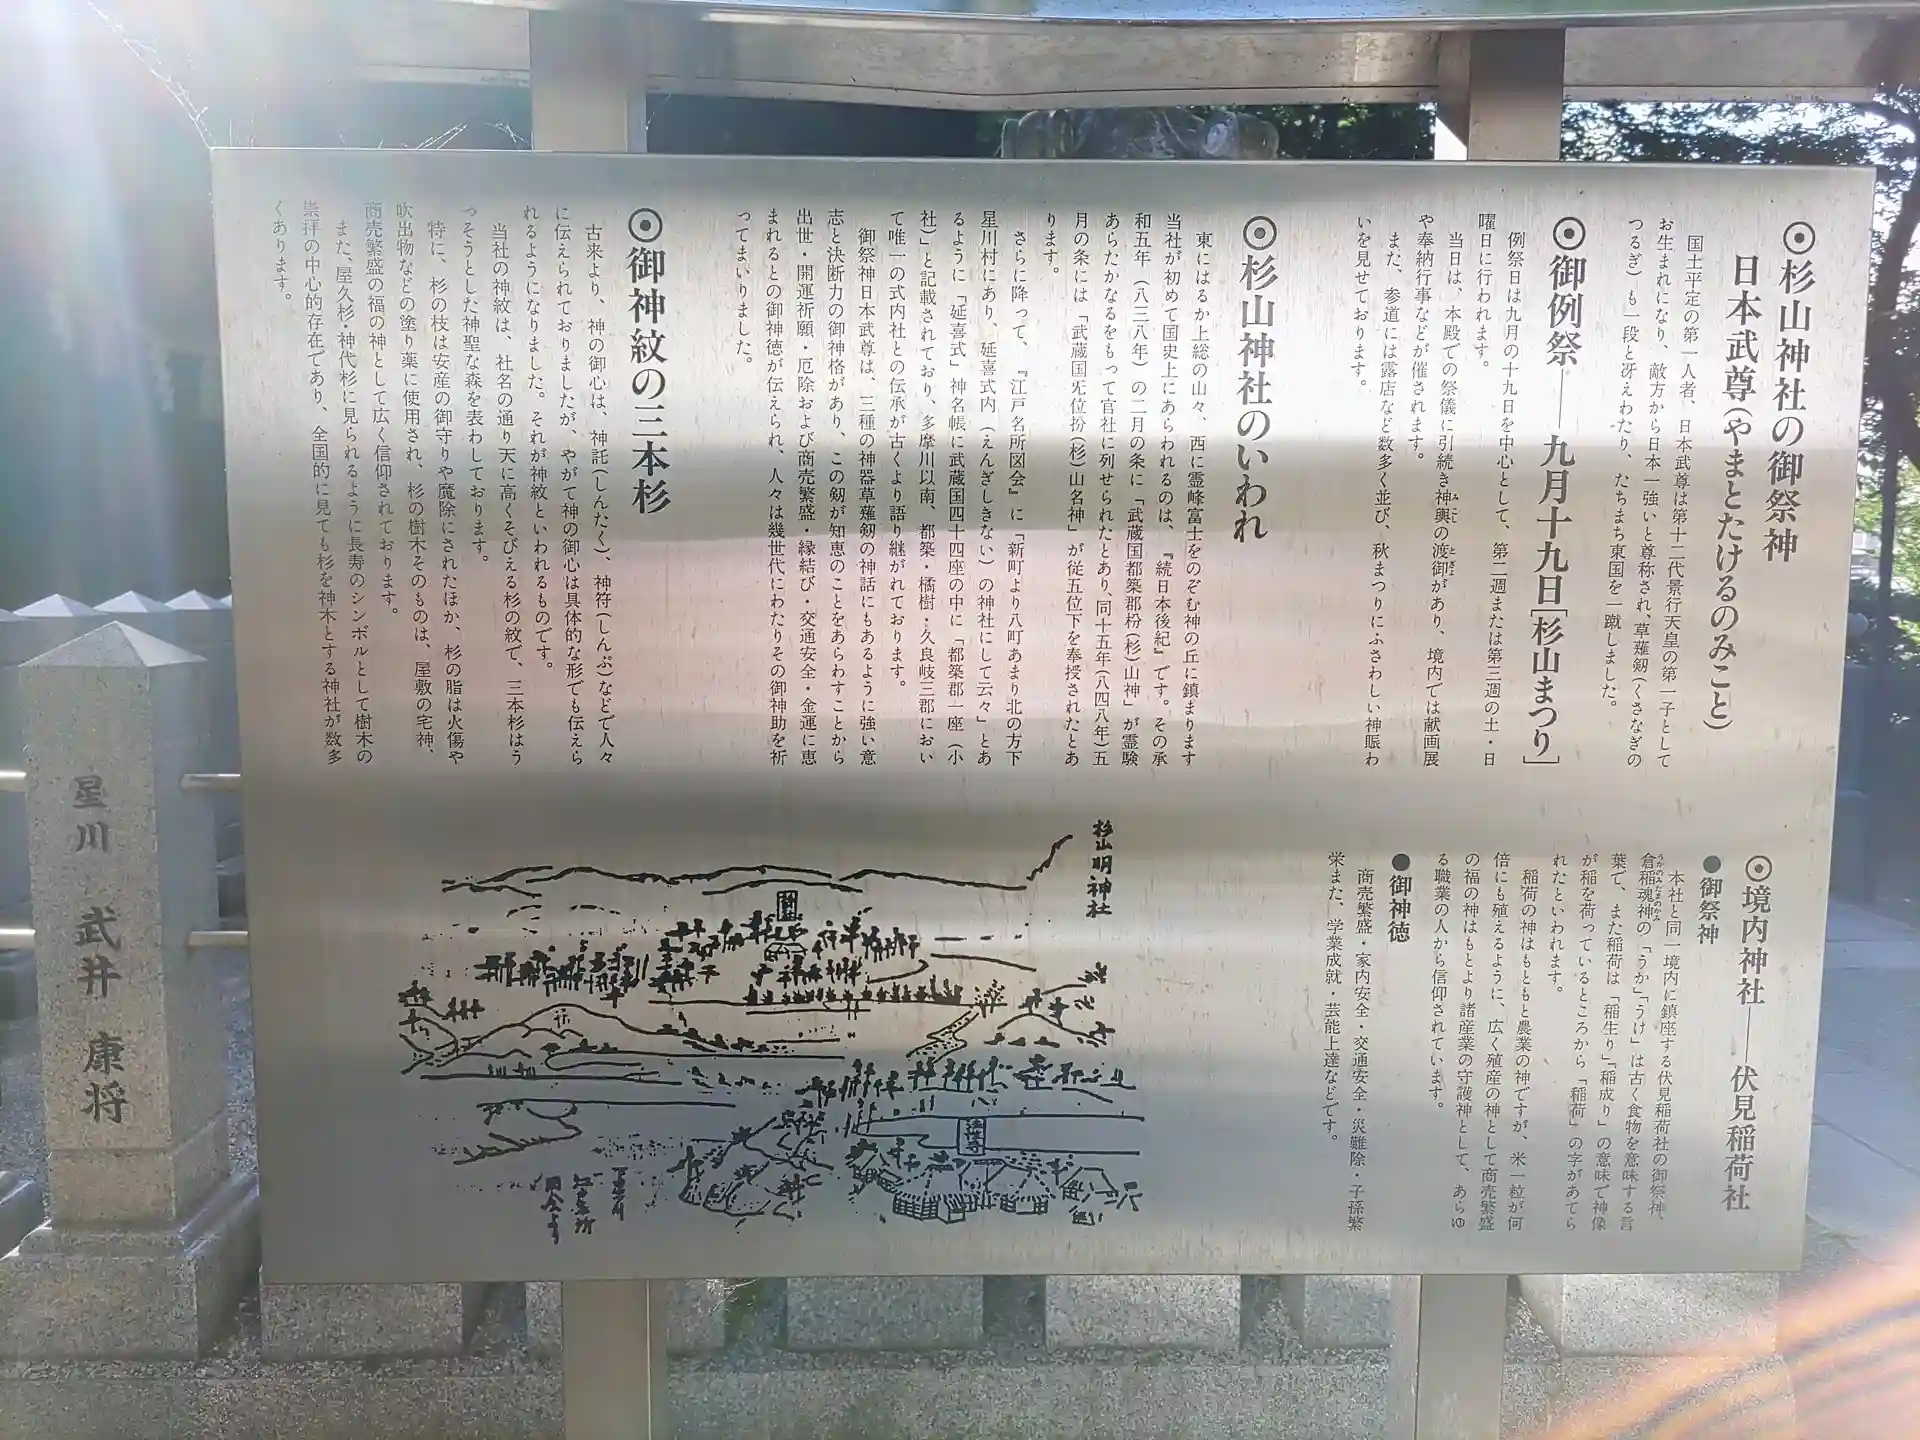 ◉杉山神社の御祭神
日本武尊(やまとたけるのみこと)
国土平定の第一人者、日本武尊は第十二代景行天皇の第一子として
お生まれになり、敵方から日本一強いと尊称され、草薙剱(くさなぎの
つるぎ)も一段と冴えわたり、たちまち東国を一蹴しました。
◉御例祭――九月十九日[杉山まつり]
例祭日は九月の十九日を中心として、第二週または第三週の土・日
曜日に行われます。
当日は、本殿での祭儀に引続き神輿の渡御があり、境内では献画展
や奉納行事などが催されます。
また、参道には露店など数多く並び、秋まつりにふさわしい神賑わ
いを見せております。
◉杉山神社のいわれ
東にはるか上総の山々、西に霊峰富士をのぞむ神の丘に鎮まります
当社が初めて国史上にあらわれるのは、『続日本後紀』です。その承
和五年(八三八年)の二月の条に「武蔵国都筑郡枌(杉)山神」が霊験
あらたかなるをもって官社に列せられたとあり、同十五年(八四八年)五
月の条には「武蔵国旡位枌(杉)山名神」が従五位下を奉授されたとあ
ります。
さらに降って、『江戸名所図会』に「新町より八町あまり北の方下
星川村にあり、延喜式内(えんぎしきない)の神社にして云々」とあ
るように「延喜式」神名帳に武蔵国四十四座の中に「都築郡一座(小
社)」と記載されており、多摩川以南、都築・橘樹・久良岐三郡におい
て唯一の式内社との伝承が古くより語り継がれております。
御祭神日本武尊は、三種の神器草薙剱の神話にもあるように強い意
志と決断力の御神格があり、この剱が知恵のことをあらわすことから
出世・開運祈願・厄除および商売繁盛・縁結び・交通安全・金運に恵
まれるとの御神徳が伝えられ、人々は幾世代にわたりその御神助を祈
ってまいりました。
◉御神紋の三本杉
古来より、神の御心は、神託(しんたく)、神符(しんぷ)などで人々
に伝えられておりましたが、やがて神の御心は具体的な形でも伝えら
れるようになりました。それが神紋といわれるものです。
当社の神紋は、社名の通り天に高くそびえる杉の紋で、三本杉はう
っそうとした神聖な森を表わしております。
特に、杉の枝は安産の御守りや魔除にされたほか、杉の脂は火傷や
吹出物などの塗り薬に使用され、杉の樹木そのものは、屋敷の宅神、
商売繁盛の福の神として広く信仰されております。
また、屋久杉・神代杉に見られるように長寿のシンボルとして樹木の
崇拝の中心的存在であり、全国的に見ても杉を神木とする神社が数多
くあります。
◉境内神社――伏見稲荷社
●御祭神
本社と同一境内に鎮座する伏見稲荷社の御祭神、
倉稲魂神の「うか」「うけ」は古く食物を意味する言
葉で、また稲荷は「稲生り」「稲成り」の意味で神像
が稲を荷っているところから「稲荷」の字があてら
れたといわれます。
稲荷の神はもともと農業の神ですが、米一粒が何
倍にも殖えるように、広く殖産の神として商売繁盛
の福の神はもとより諸産業の守護神として、あらゆ
る職業の人から信仰されています。
●御神徳
商売繁盛・家内安全・交通安全・災難除・子孫繁
栄また、学業成就・芸能上達などです。
杉山明神社
星川 武井 康将